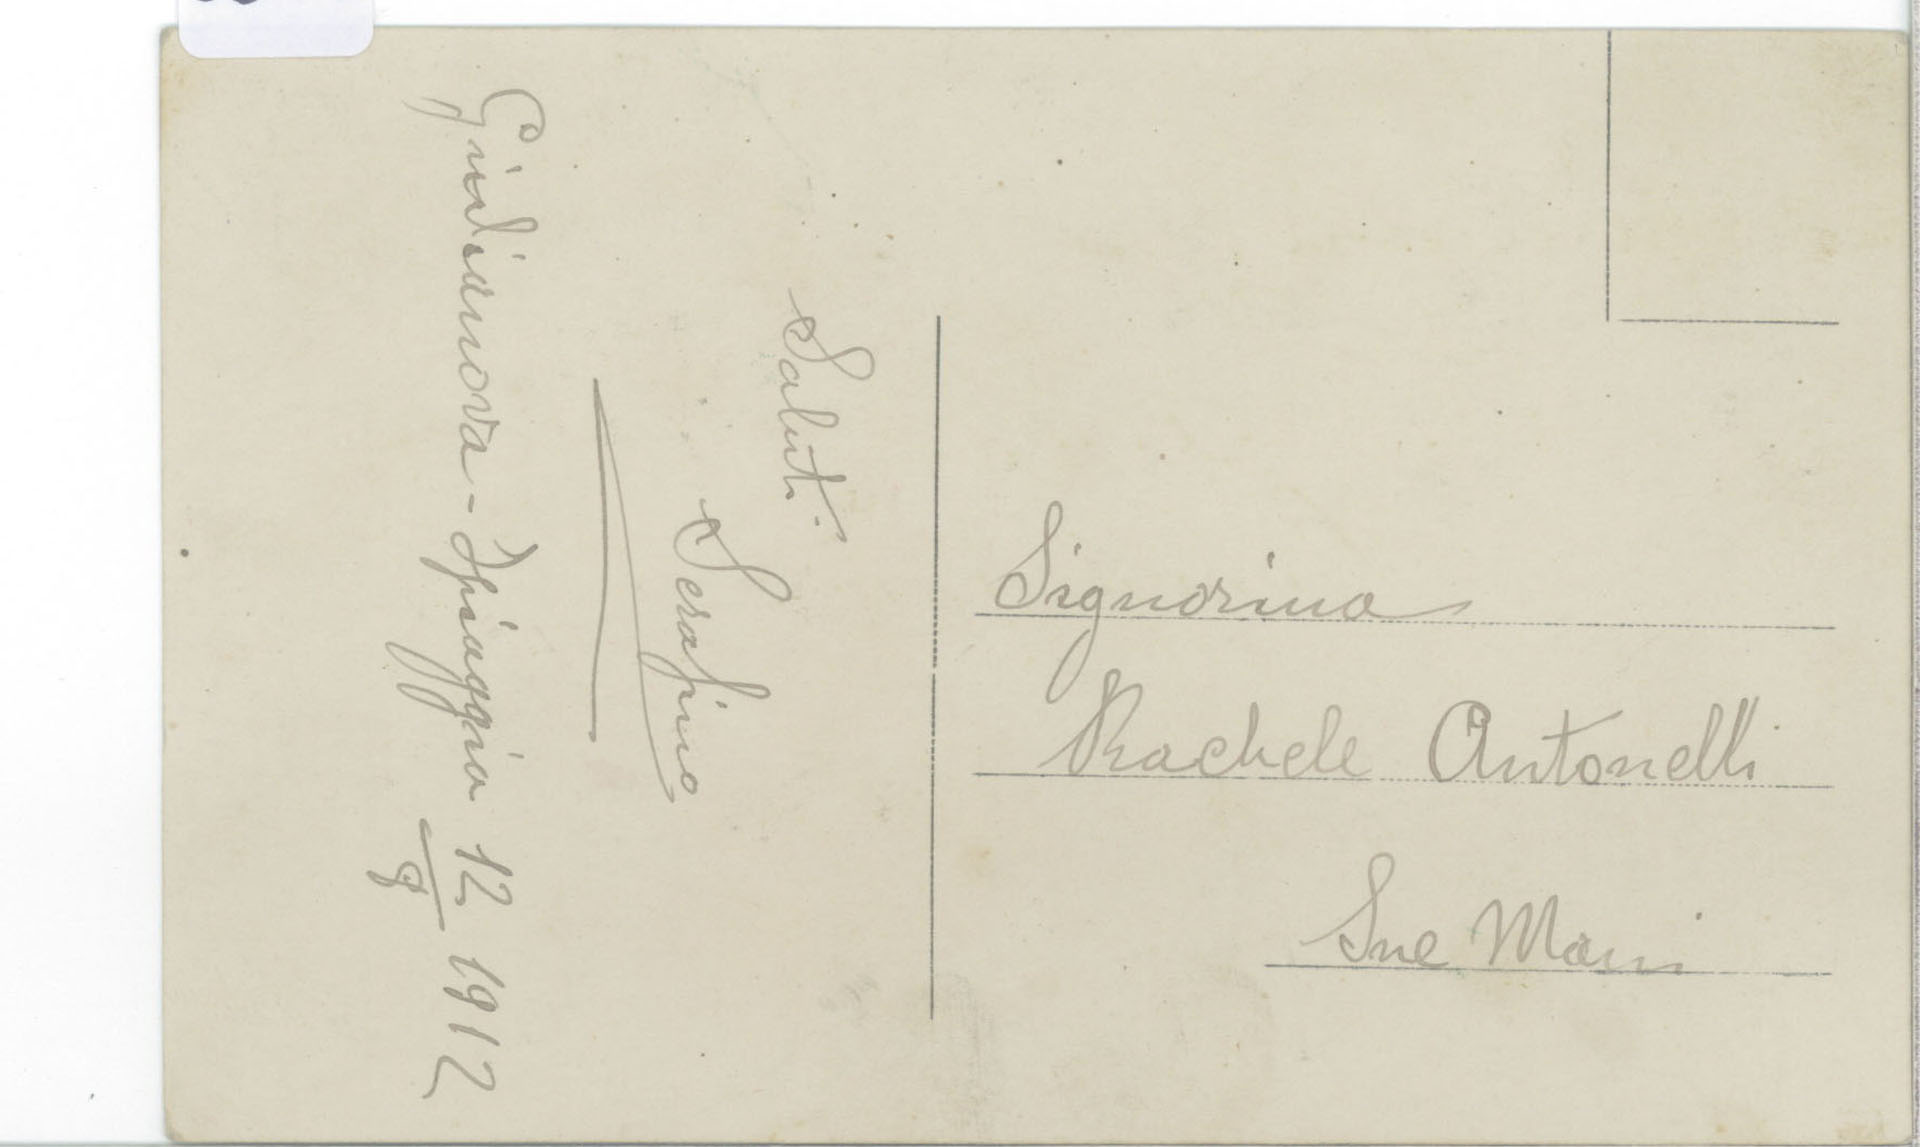 Saluti
Serafino
Giulianova - Spiaggia 12/8 1912
Signorina
Rachele Antonelli
Sue Mani